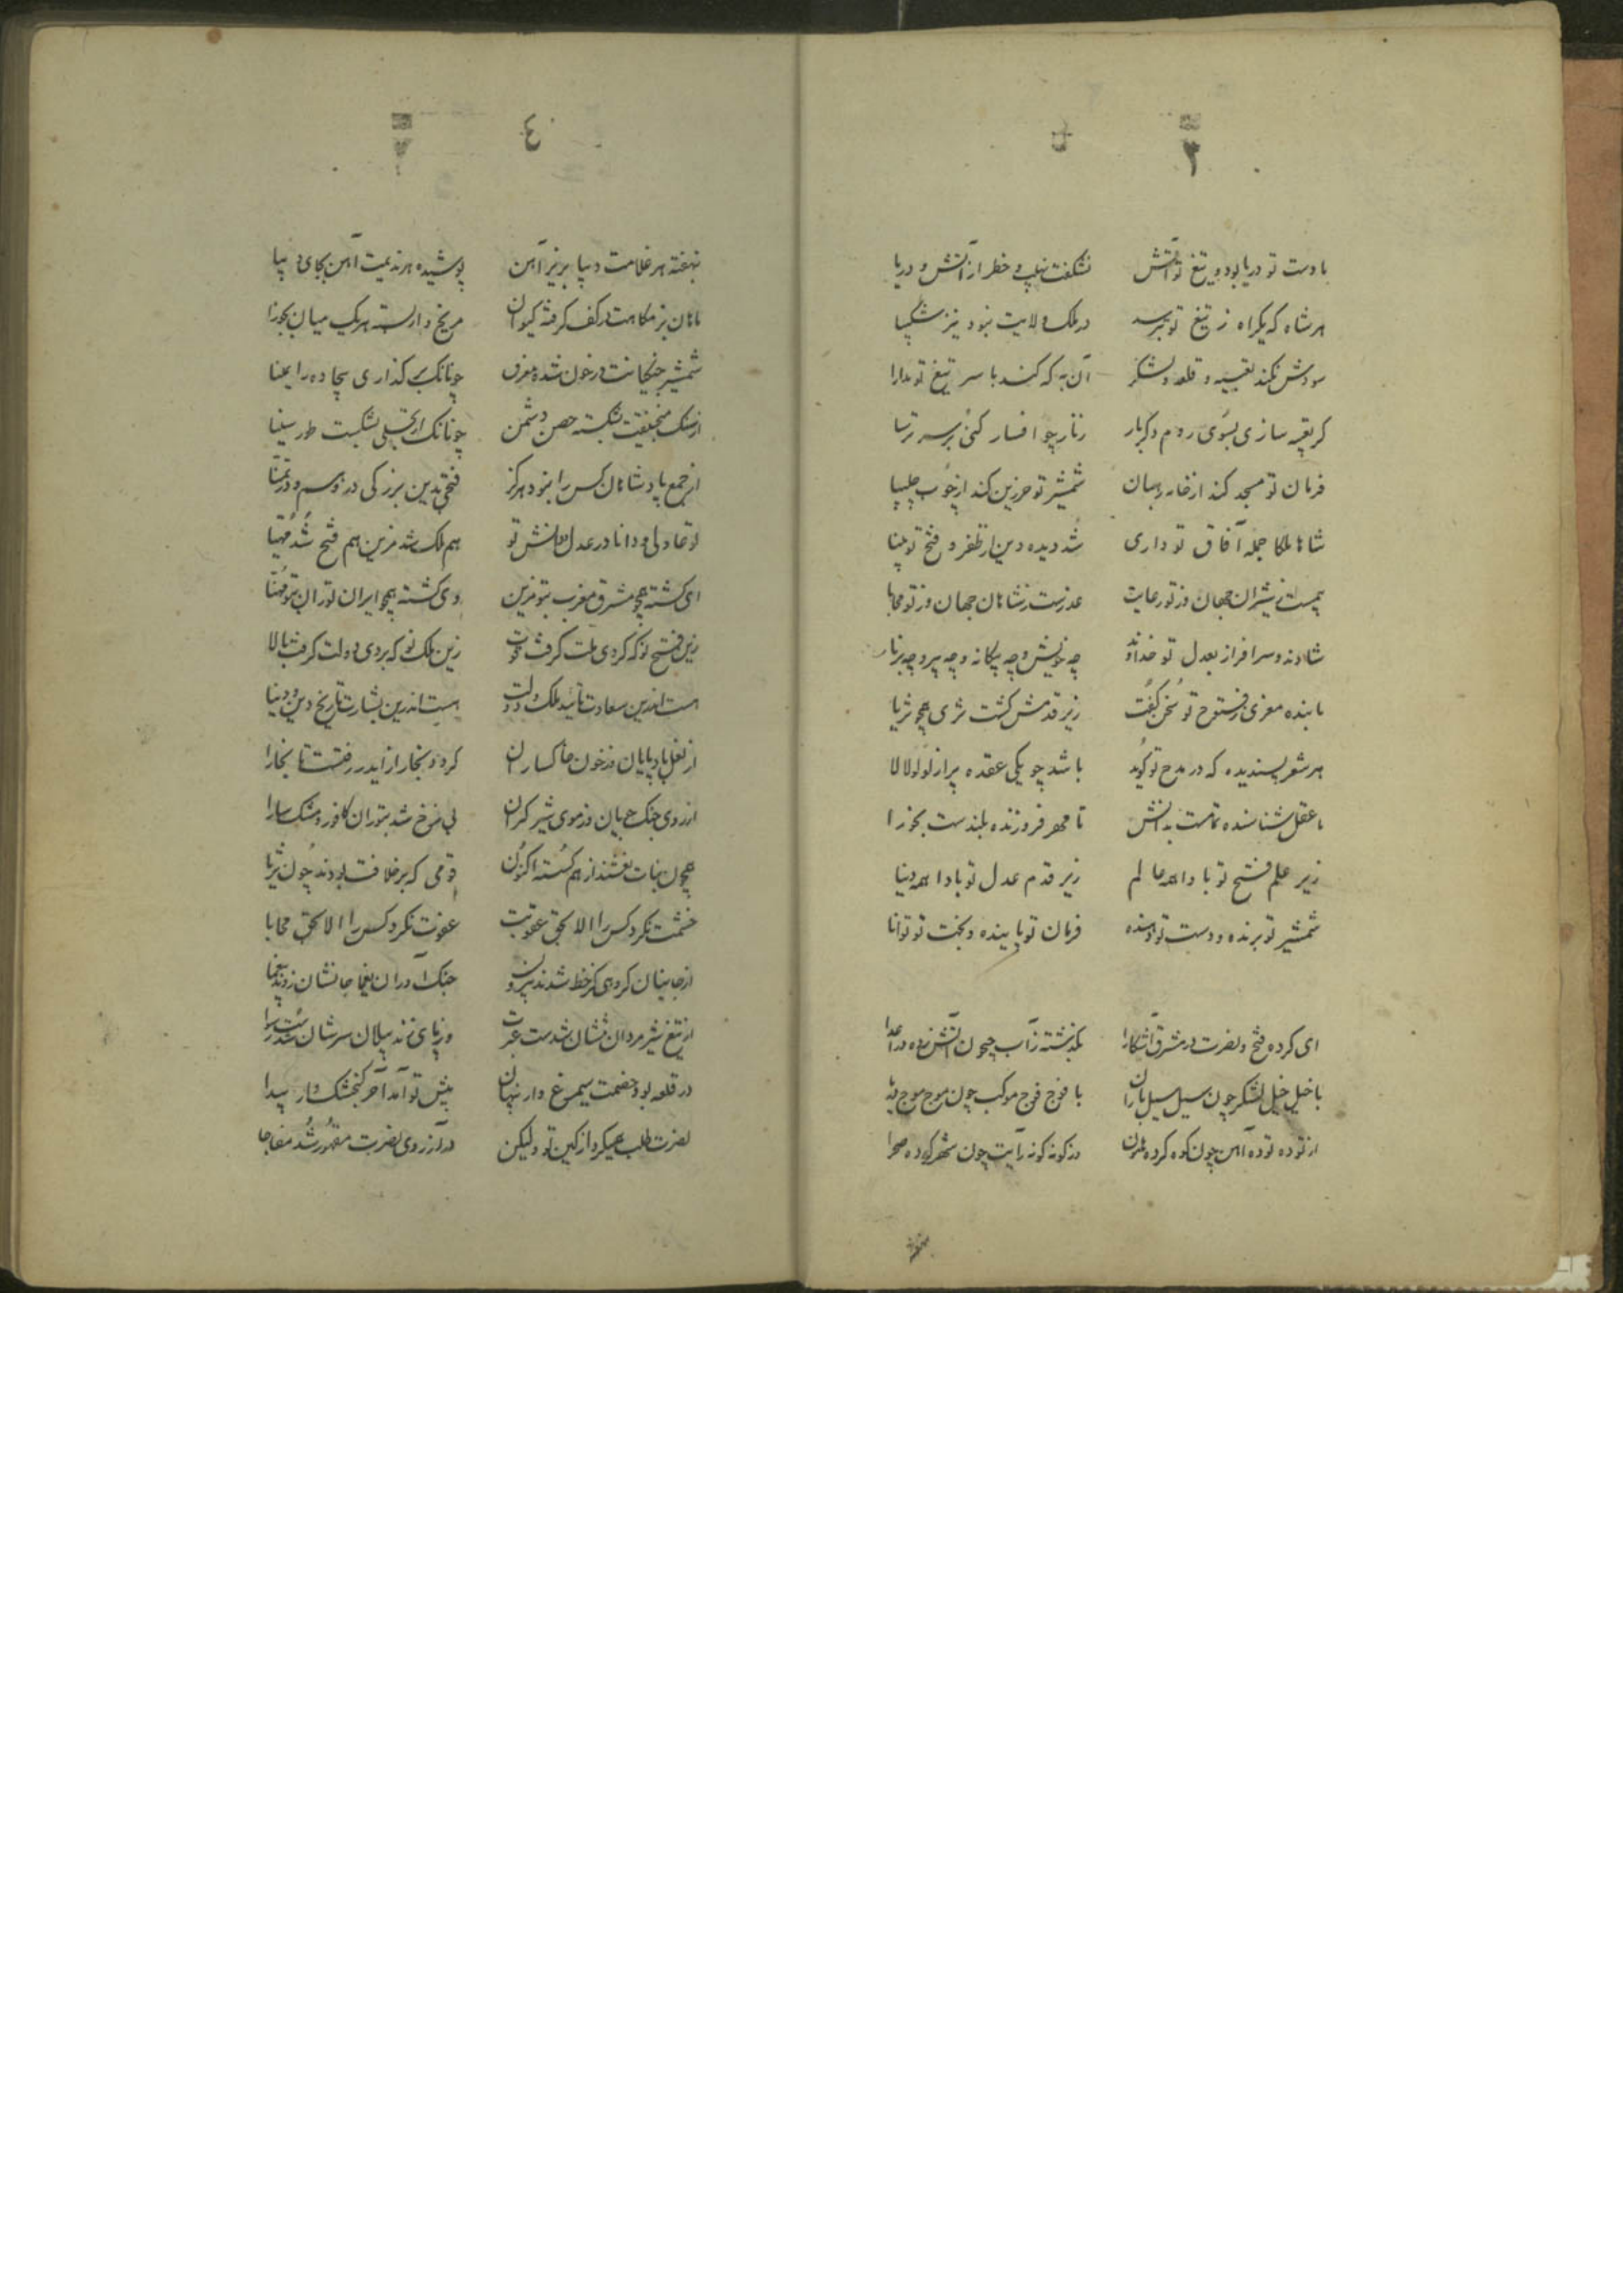 ۳
با دست تو دریا بود و تیغ تو آتش نشکفت نهیب و خطر از آتش و دریا
هر شاه که یکراه ز تیغ تو بترسد در ملک ولایت نبود نیز شکیبا
سودش نکند تعبیه و قلعه و لشکر آن به که کند با سر تیغ تو مدارا
کر تعبیه سازی بسوی روم دکربار زنار چو افسار کنی بر سر ترسا
فرمان تو مسجد کند از خانه رهبان شمشیر تو حرزین کند از چوب چلیپا
شاها ملکا جمله آفاق تو داری شد دیده دین از ظفر و فتح تو بینا
شیران جهان وز تو رعایت عذرست ز شاهان جهان وز تو محابا
شادند و سرافراز بعدل تو خداوند چه خویش و چه بیکانه و چه پیر و چه برنا
تا بنده معزی ز فتوح تو سخن کفت زیر قدمش کشت ثری همچو ثریا
هر شعر پسندیده که در مدح تو کوید باشد چو یکی عقده پر از لولو لالا
تا عقل شناسنده تمامست بدانش تا مهر فروزنده بلندست بجوزا
زیر علم فتح تو بادا همه عالم زیر قدم عدل تو بادا همه دنیا
شمشیر تو برنده و دست تو دهنده فرمان تو پاینده و بخت تو توانا
ای کرده فتح و نصرت در مشرق آشکارا بکذشته ز آب جیحون آتش زده در اعدا
با خیل خیل لشکر چون سیل سیل باران با فوج فوج موکب چون موج موج دریا
از توده توده آهن چون کوه کرده هامون وز کونه کونه رایت چون شهر کرده صحرا
٤
نهفته هر غلامت دیبا بزیر آهن پوشیده هر ندیمت آهن بجای دیبا
ماهان بزمکاهت در کف کرفته کیوان مریخ وار بسته هر یک میان بجوزا
شمشیر جنکیانت در خون شده معرق چونانک بر کذاری بیجاده را بمینا
از سنک منجنیقت بشکسته حصن دشمن چونانک از تجلی بشکست طور سینا
از جمع پادشاهان کس را نبود هرکز فتحی بدین بزرکی در وهم و در تمنا
تو عادلی و دانا در عدل و دانش تو هم ملک شد مزین هم فتح شد مهیا
ای کشته همچو مشرق مغرب بتو مزین وی کشته همچو ایران توران بتو مهنا
زین فتح نو که کردی ملت کرفت قوت زین ملک نو که بردی دولت کرفت بالا
هست اندرین سعادت تائید ملک و دولت هست اندرین بشارت تاریخ دین و دنیا
از نعل بادپایان وز خون خاکساران کرد و بخار از ایدر رفتست تا بخارا
از روی جنکجویان وز موی شیرکیران بی نرخ شد بتوران کافور و مشک سارا
همچون بنات نعشند از هم کسسته اکنون قومی که بر خلافت بودند چون ثریا
خشمت نکرد کس را الا بحق عقوبت عفوت نکرد کس را الا بحق محابا
از جانیان کروهی کز خط شدند بیرون جنک آوران یغما جانشان زدند یغما
از تیغ شیر مردان شدست عبرت وز پای تند پیلان سرشان شدست
در قلعه بود خصمت سیمرغ وار پنهان پیش تو آمد آخر کنجشک وار پیدا
نصرت طلب همیکرد از کین تو ولیکن در آرزوی نصرت مقهور شد مفاجا